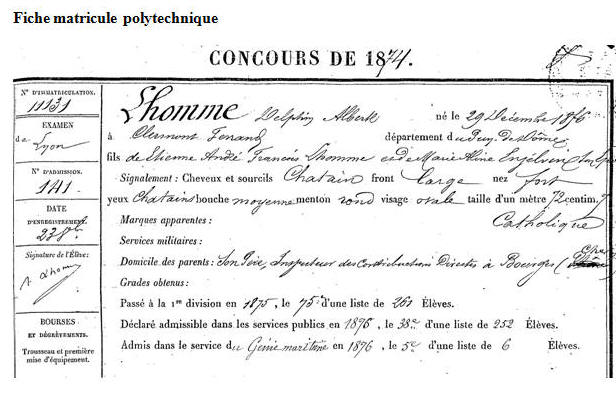 Fiche matricule polytechnique
CONCOURS DE 1874.
N° D'IMMATRICULATION.
11131
EXAMEN
de Lyon
N° D'ADMISSION.
141
DATE
D'ENREGISTREMENT.
Signature de l'Élève:
BOURSES
ET DÉGRÈVEMENTS.
Trousseau et première
mise d'équipement.
Lhomme Delphin Albert né le 29 Décembre
à Clermont Ferrand département du Puy de Dôme
fils de Etienne André François Lhomme et de Marie Aline
Signalement : Cheveux et sourcils Chatain front Large nez fort
yeux Chatains bouche moyenne menton rond visage ovale taille d'un mètre 72 centim.
Marques apparentes : Catholique
Services militaires :
Domicile des parents : Son Père, Inspecteur des Contributions Directes à Bourges
Grades obtenus :
Passé à la 1re division en 1875, le 75e d'une liste de 261 Élèves.
Déclaré admissible dans les services publics en 1876, le 38e d'une liste de 252 Élèves.
Admis dans le service du Génie maritime en 1876, le 5e d'une liste de 6 Élèves.